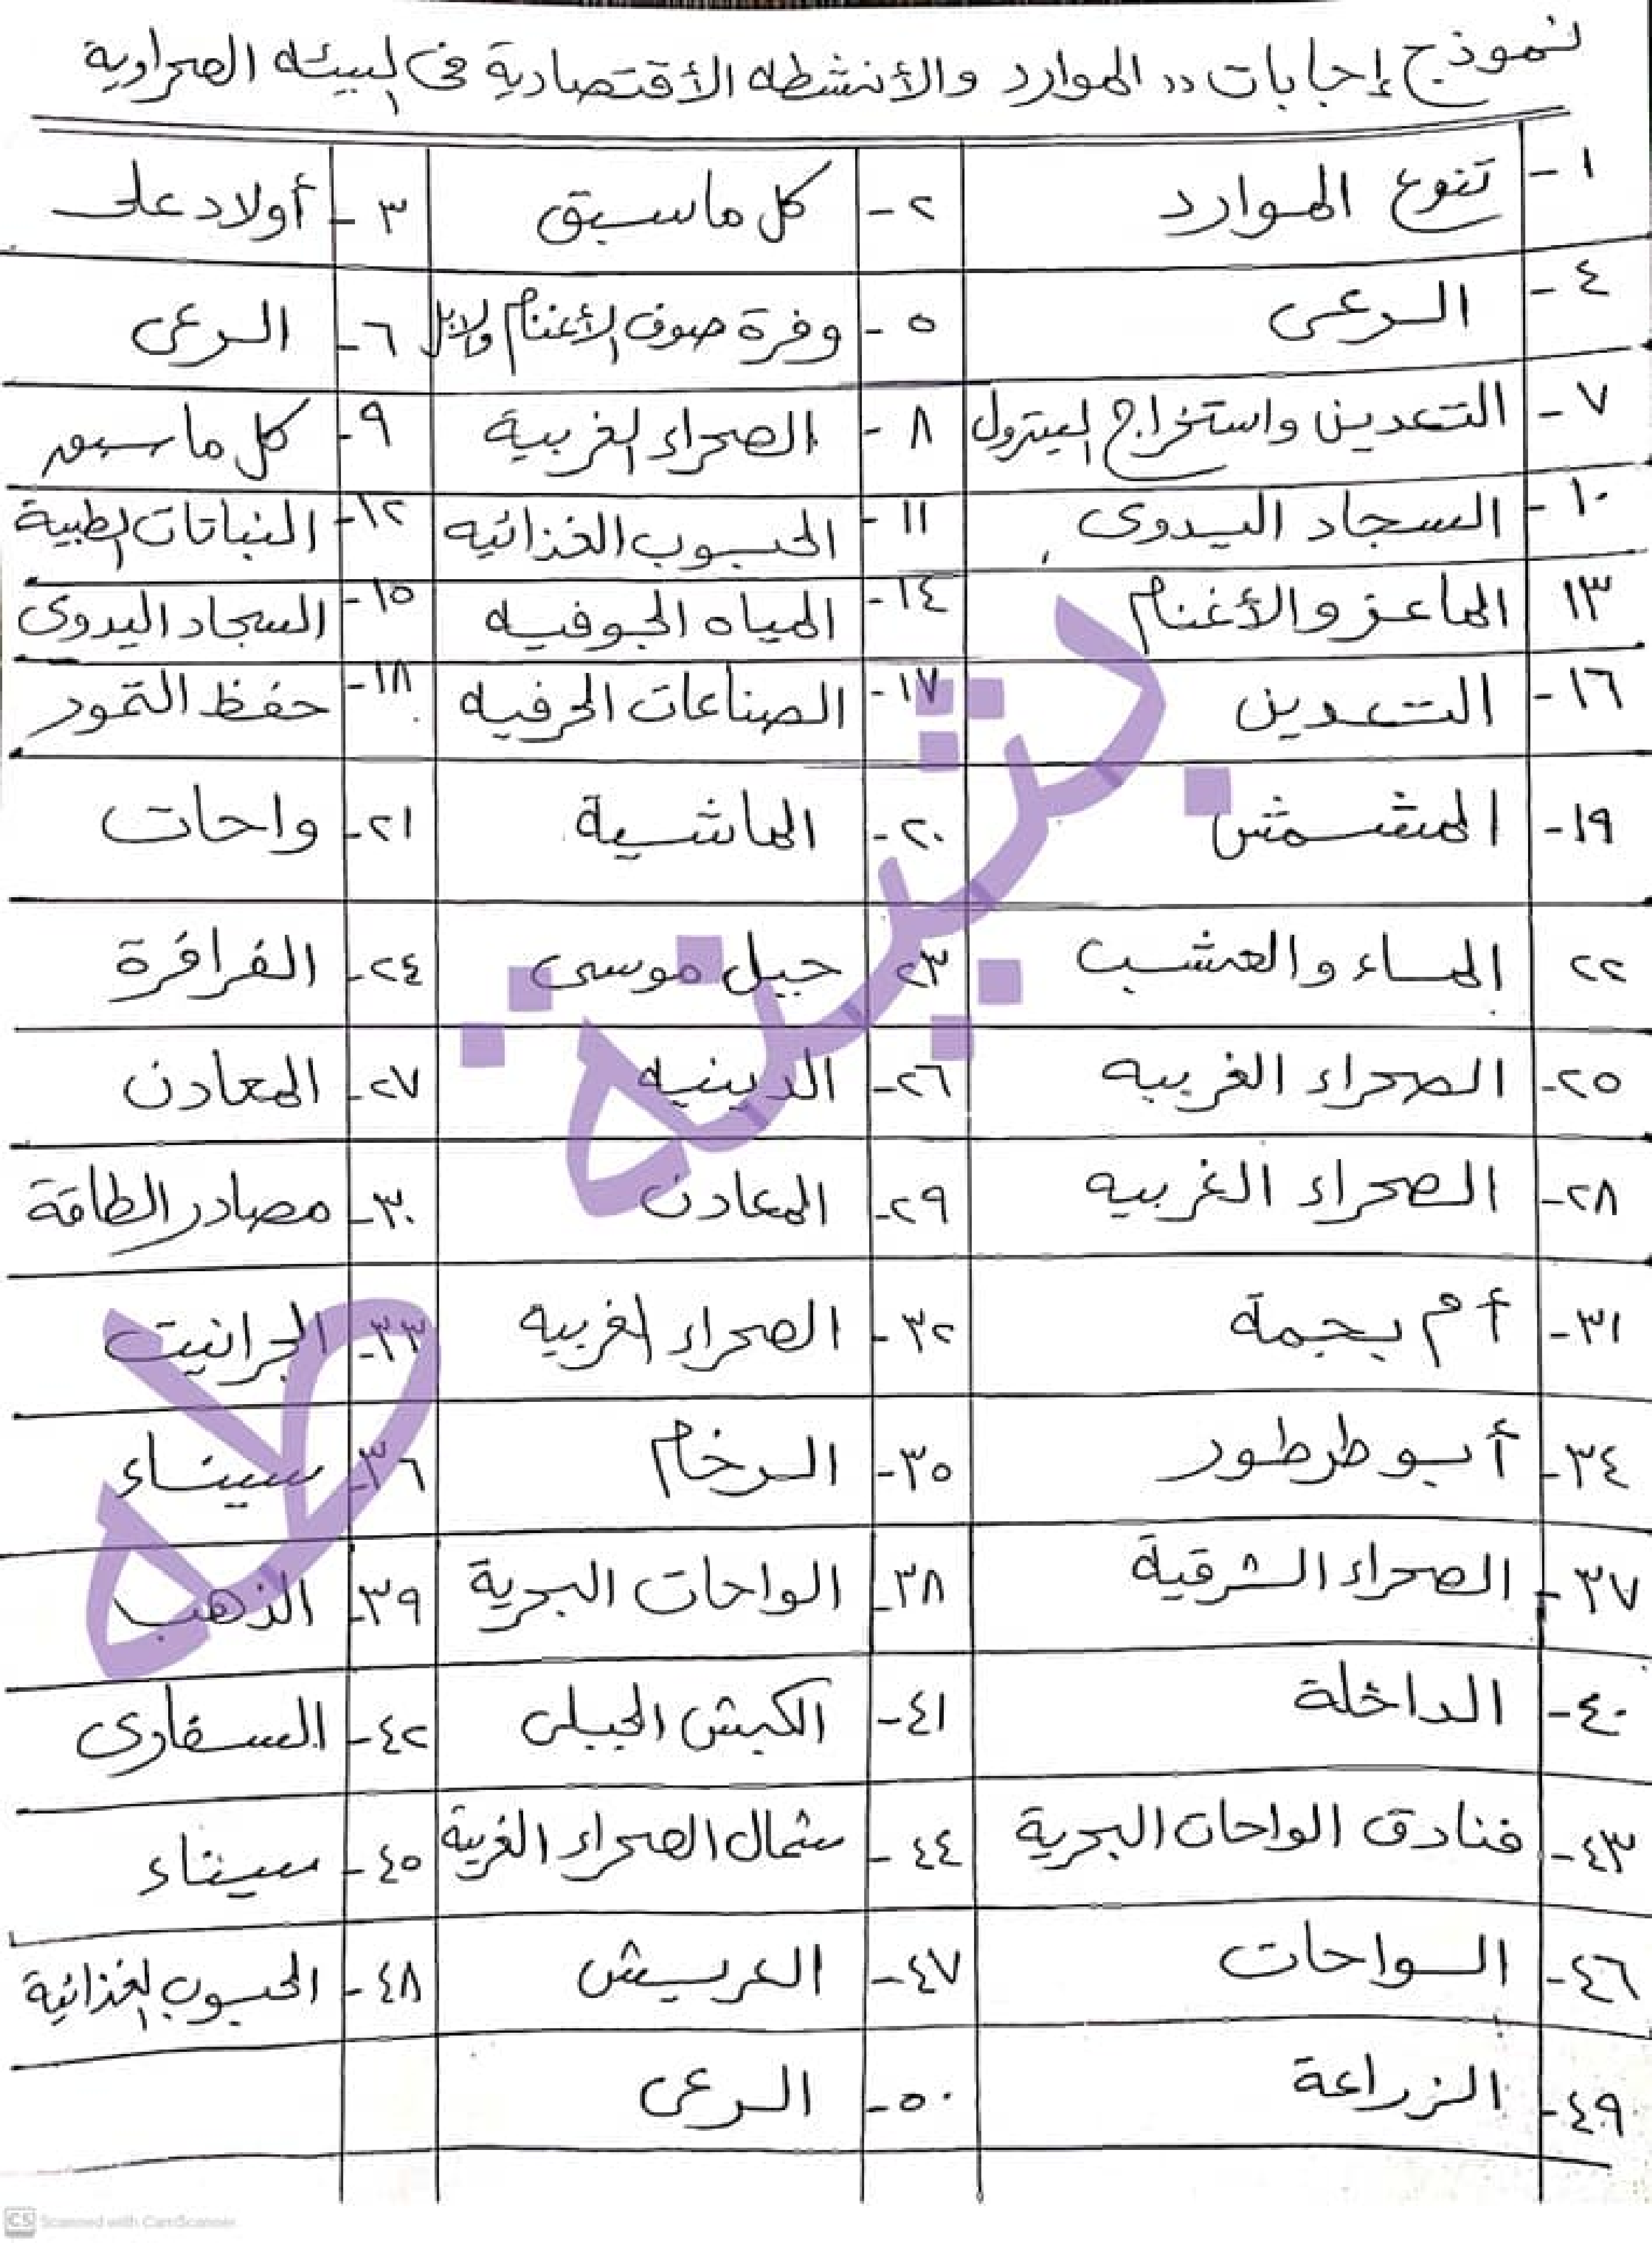 نموذج إجابات ,, الموارد والأنشطه الأقتصادية فى البيئه الصحراوية
١- تنوع الموارد ٢- كل ما سبق ٣- أولاد على
٤- الرعى ٥- وفرة صوف الأغنام والابل ٦- الرعى
٧- التعدين واستخراج البترول ٨- الصحراء الغربية ٩- كل ما سبق
١٠- السجاد اليدوى ١١- الحبوب الغذائيه ١٢- النباتات الطبية
١٣ الماعز والأغنام ١٤- المياه الجوفيه ١٥- السجاد اليدوى
١٦- التعدين ١٧- الصناعات الحرفيه ١٨- حفظ التمور
١٩- المشمش ٢٠- الماشية ٢١- واحات
٢٢ الماء والعشب ٢٣ جبل موسى ٢٤- الفرافرة
٢٥- الصحراء الغربيه ٢٦- الدينيه ٢٧- المعادن
٢٨- الصحراء الغربيه ٢٩- المعادن ٣٠- مصادر الطاقة
٣١- أم بجمة ٣٢- الصحراء الغربيه ٣٣- الجرانيت
٣٤- أبو طرطور ٣٥- الرخام ٣٦- سيناء
٣٧- الصحراء الشرقية ٣٨- الواحات البحرية ٣٩- الذهب
٤٠- الداخلة ٤١- الكبش الجبلى ٤٢- السفارى
٤٣- فنادق الواحات البحرية ٤٤- شمال الصحراء الغربية ٤٥- سيناء
٤٦- الواحات ٤٧- العريش ٤٨- الحبوب الغذائية
٤٩- الزراعة ٥٠- الرعى
CS Scanned with CamScanner